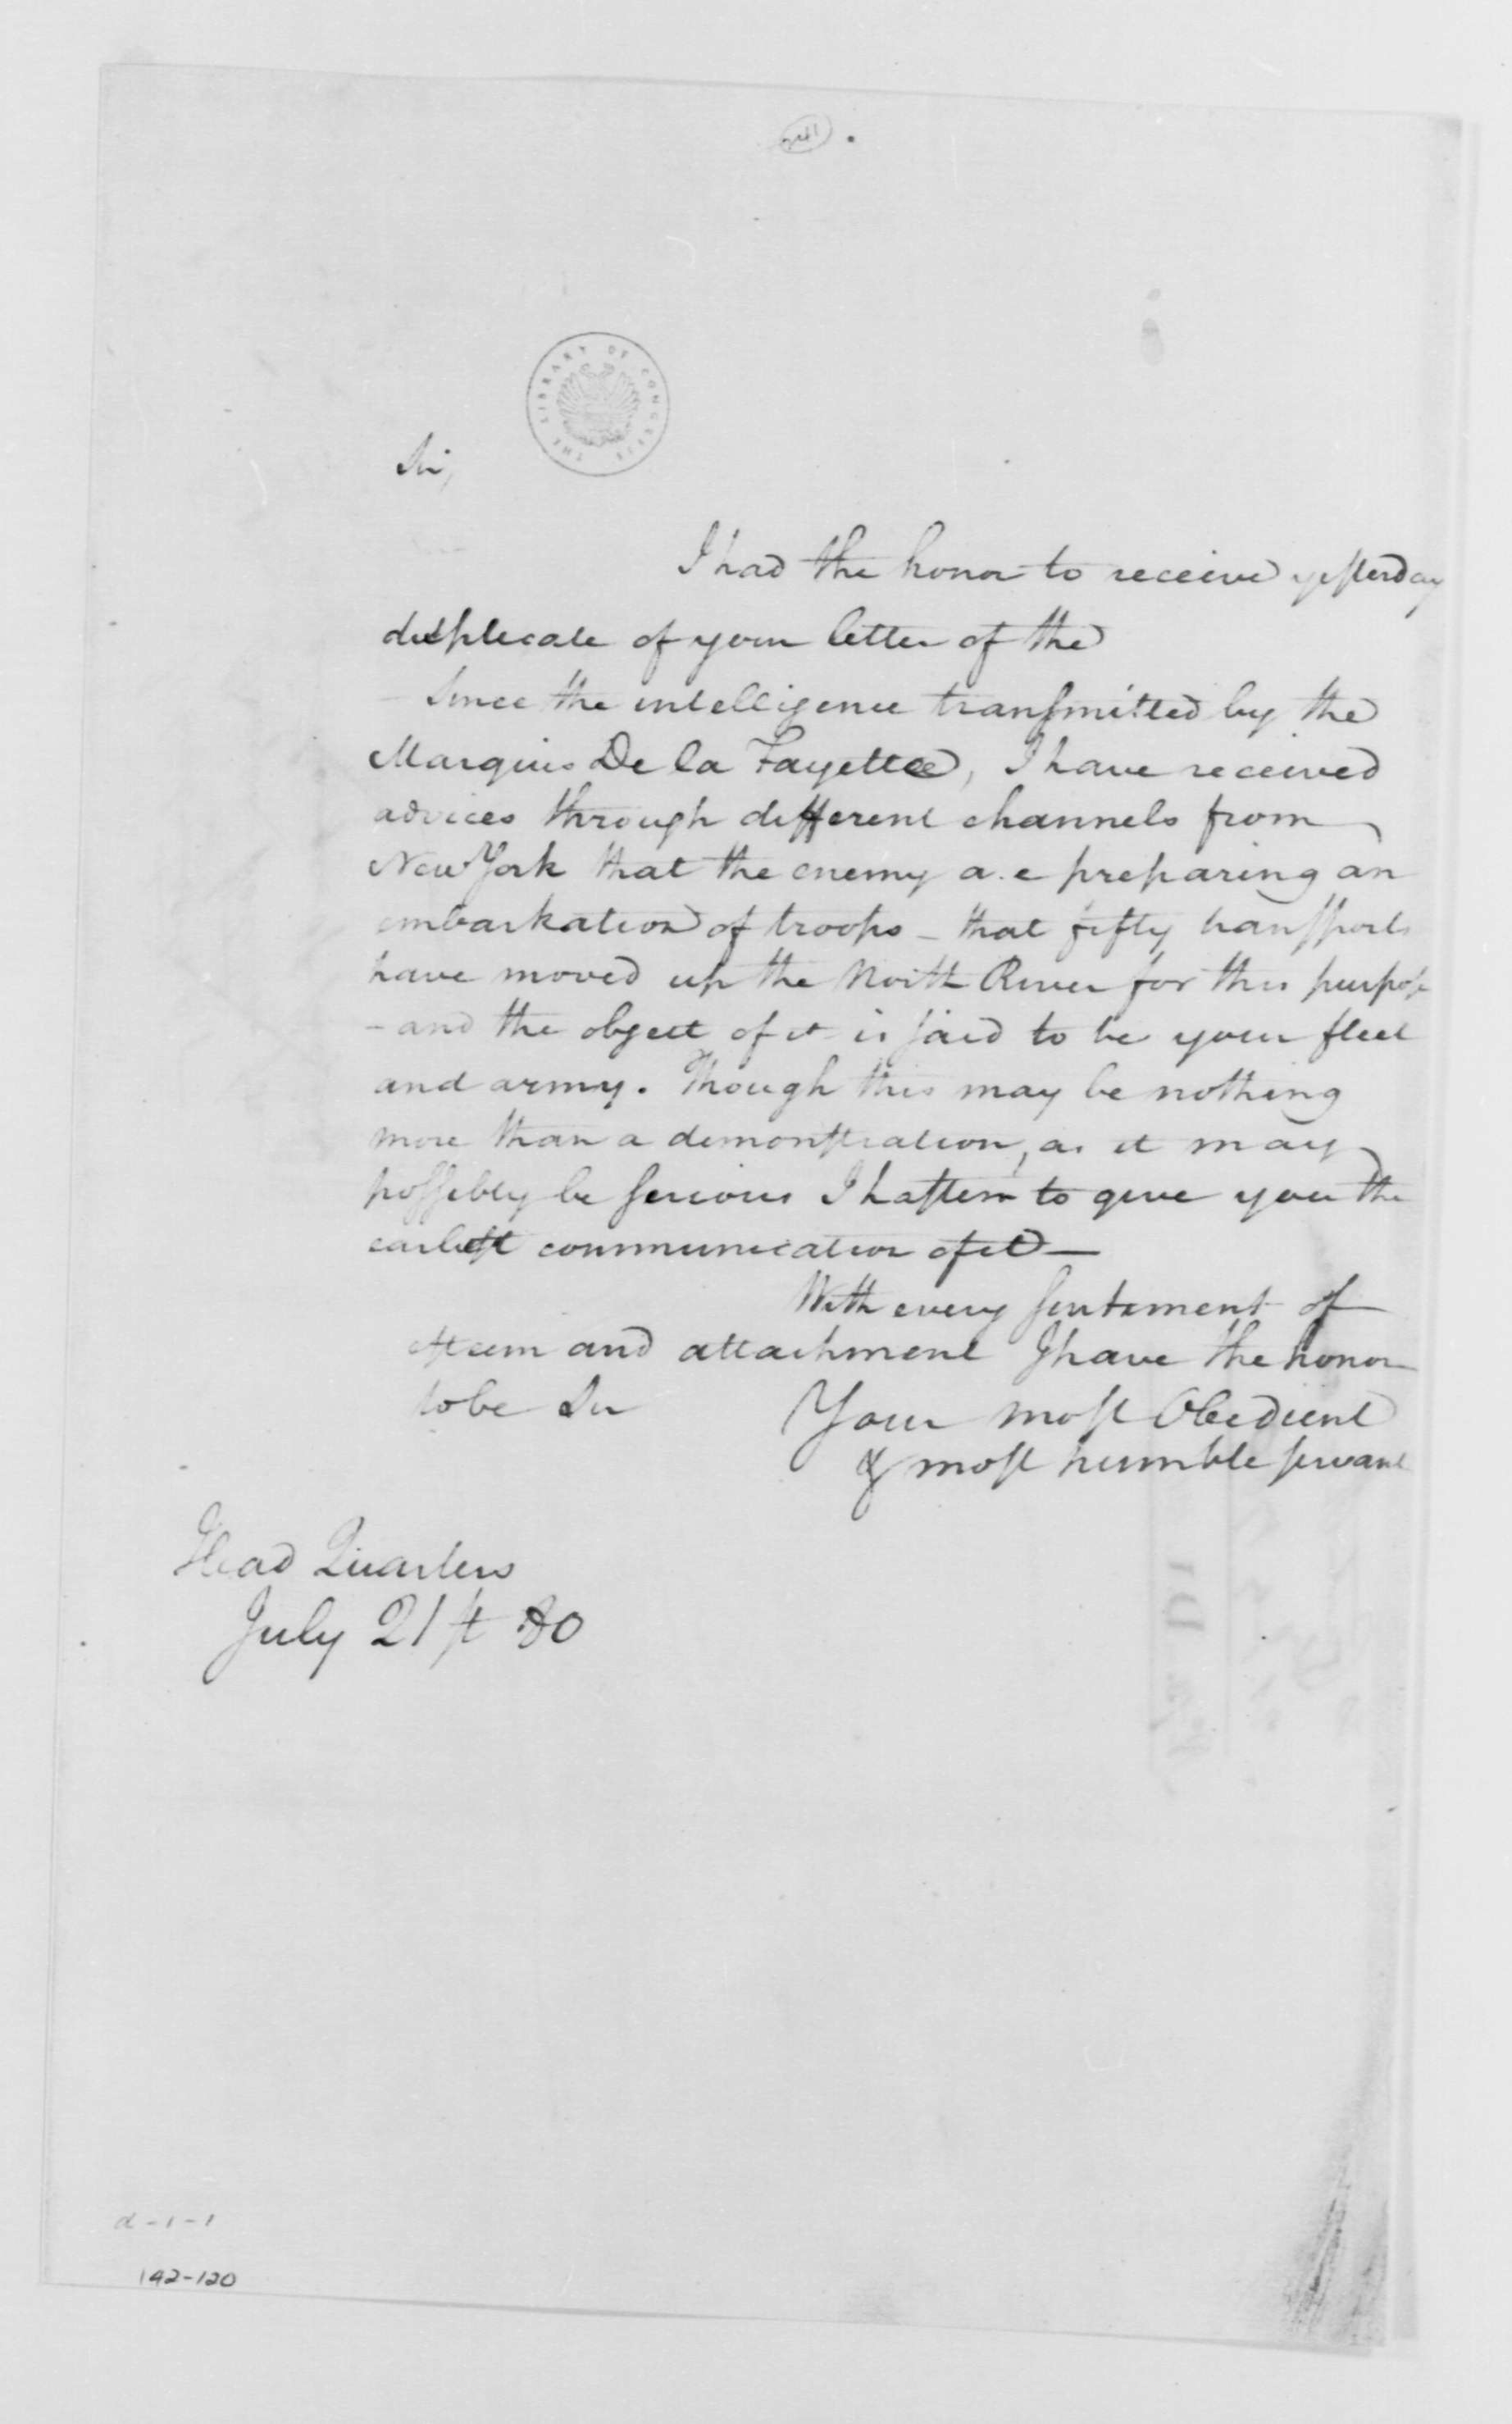 THE LIBRARY OF CONGRESS
Sir,
I had the honor to receive yesterday
duplicate of your letter of the
- Since the intelligence transmitted by the
Marquis De la Fayette, I have received
advices through different channels from
New York that the enemy a.e preparing an
embarkation of troops - that fifty transports
have moved up the North River for this purpose
- and the object of it is said to be your fleet
and army. Though this may be nothing
more than a demonstration, as it may
possibly be serious I hasten to give you the
earliest communication of it —
With every sentiment of
esteem and attachment I have the honor
to be Sir
Your most Obedient
& most humble servant
Head Quarters
July 21st 80
d-1-1
192-120